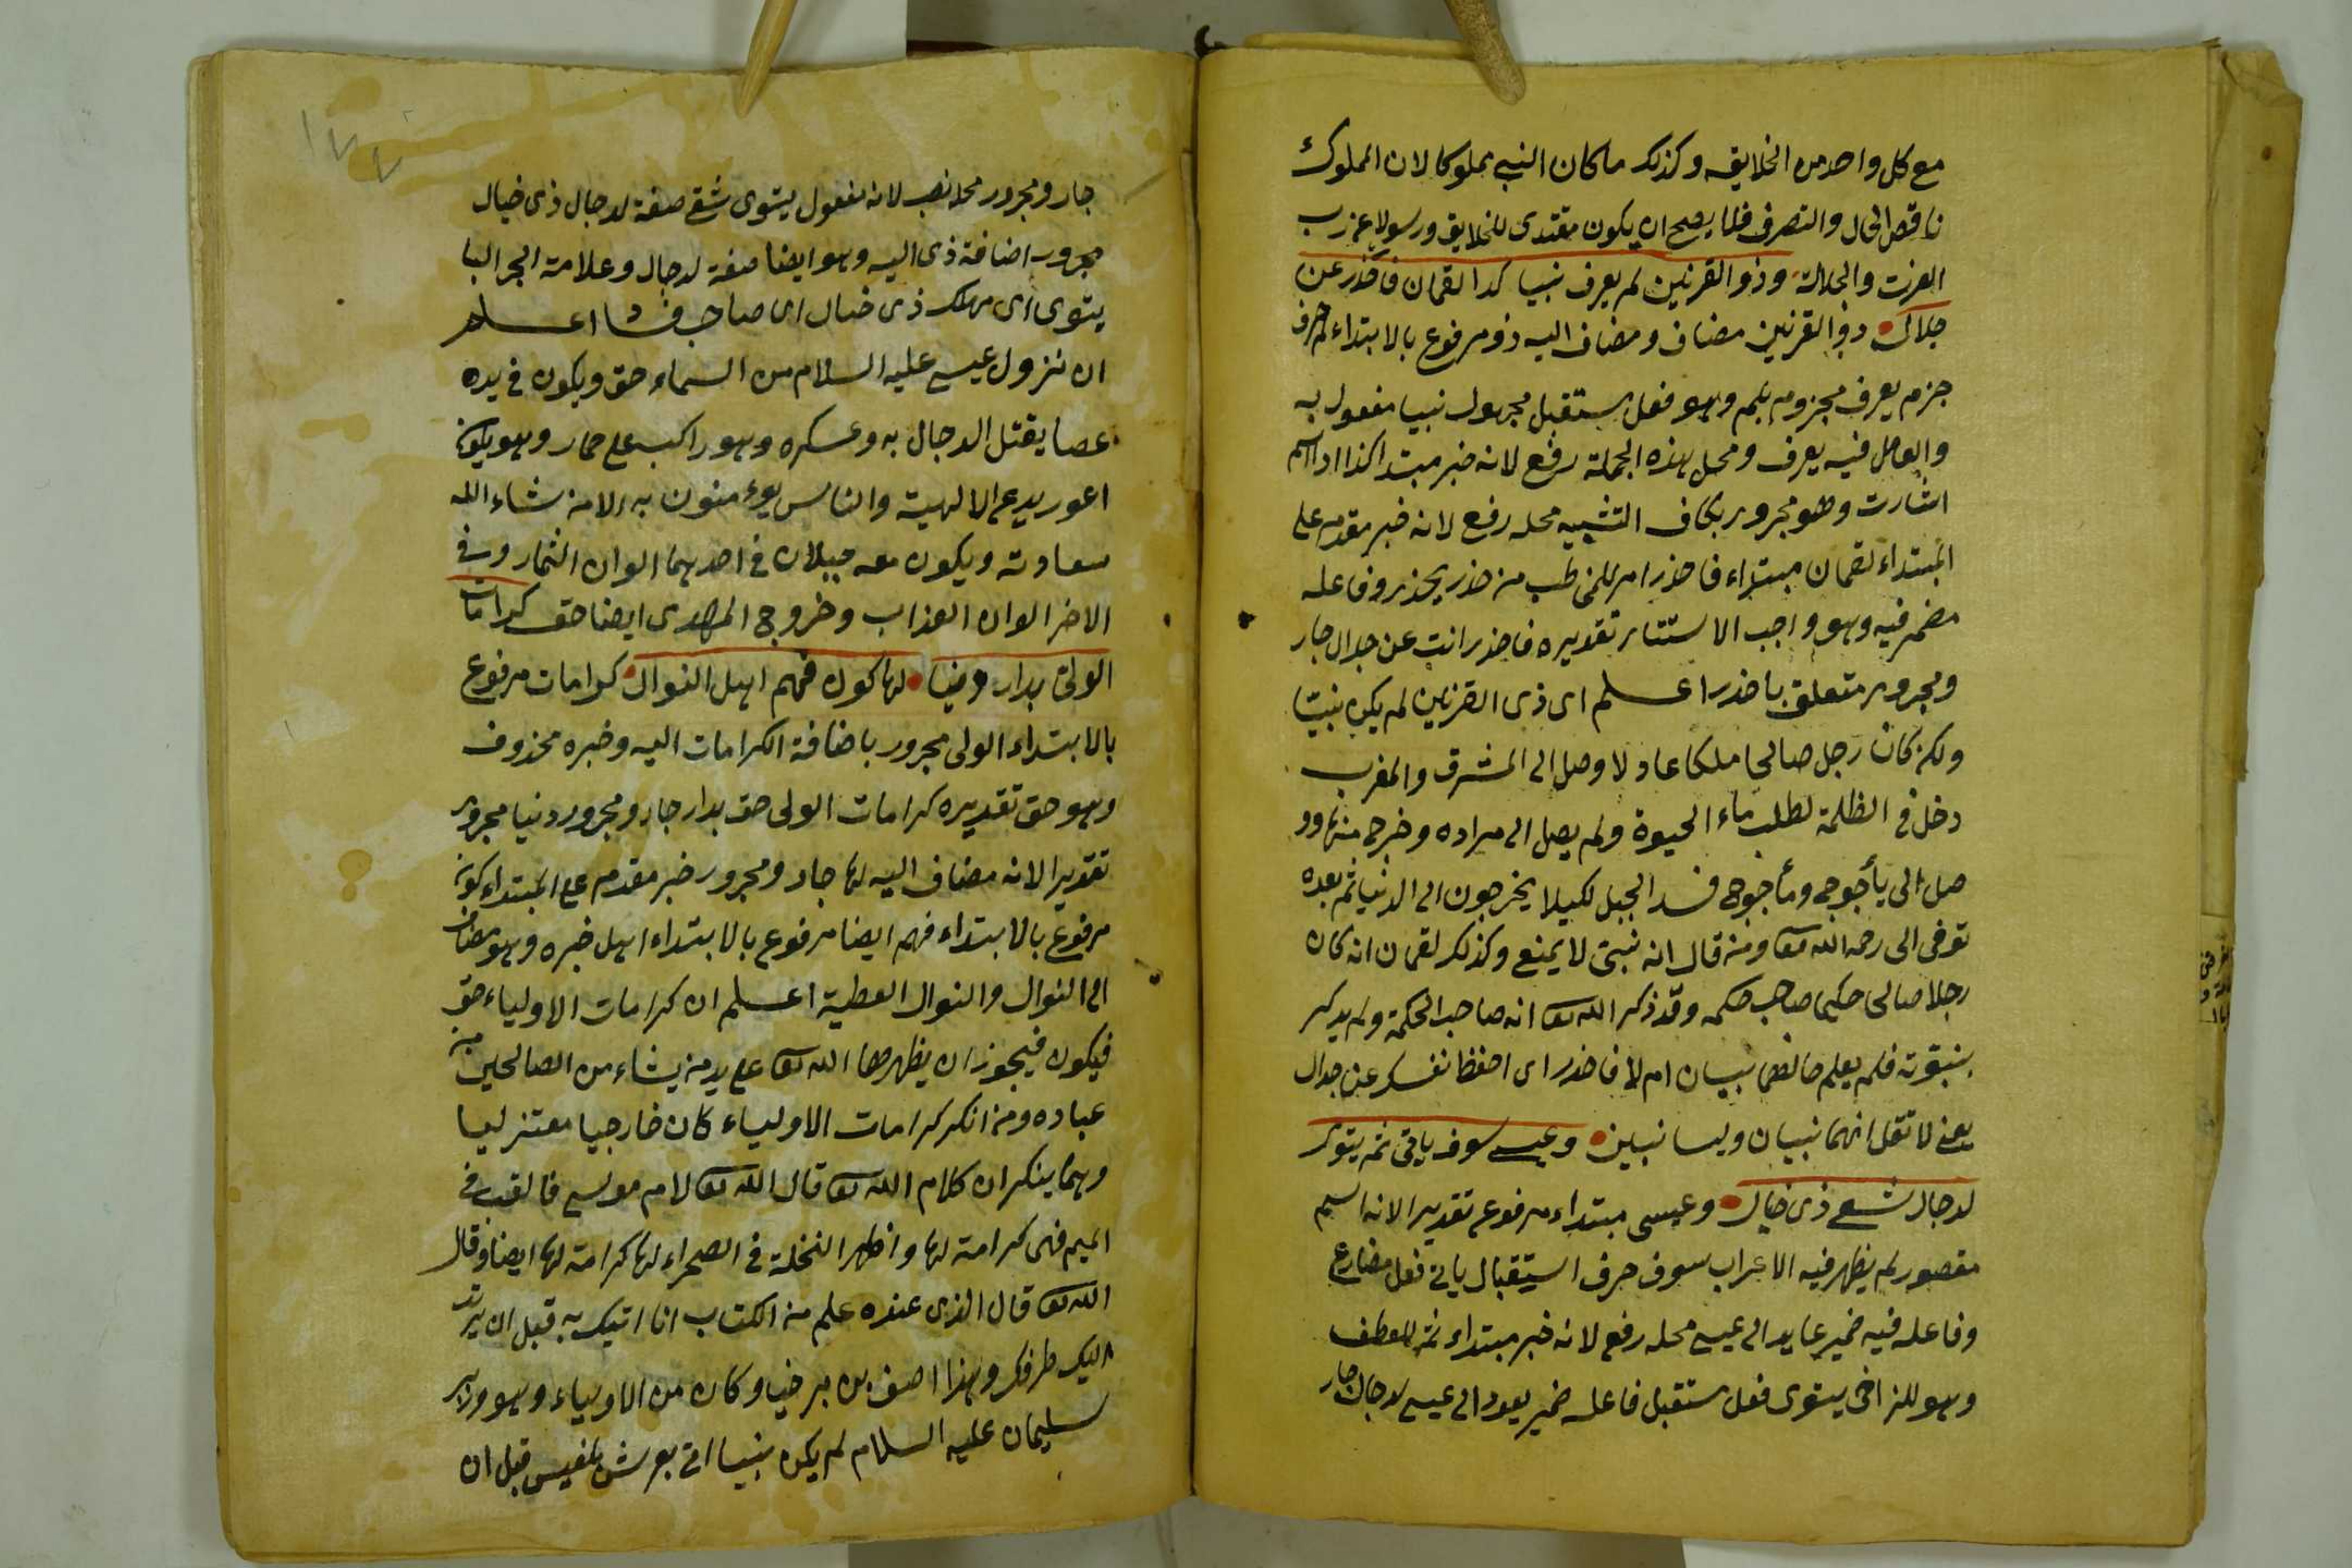 مع كل واحد من الخلايق وكذلك ما كان النبي مملوكا لان المملوك
ناقص الحال والتصرف فلما يصح ان يكون مقتدى للخلايق ورسولا عن رب
العزت والجلالة وذو القرنين لم يعرف نبيا كذا لقمان فاحذر عن
جلال ذو القرنين مضاف ومضاف اليه ذو مرفوع بالابتداء لم حرف
جزم يعرف مجزوم بلم وهو فعل مستقبل مجهول نبيا مفعول به
والعامل فيه يعرف ومحل هذه الجملة رفع لانه خبر مبتدا كذا اذا اسم
اشارت وهو مجرور بكاف التشبيه محله رفع لانه خبر مقدم على
المبتداء لقمان مبتداء فاحذر امر للمخاطب من حذر يحذر وفاعله
مضمر فيه وهو واجب الاستتار تقديره فاحذر انت عن جدال جار
ومجرور متعلق باحذر اعلم اى ذى القرنين لم يكن نبيّا
ولكن كان رجل صالحا ملكا عادلا وصل الى المشرق والمغرب
دخل فى الظلمة لطلب ماء الحيوة ولم يصل الى مراده وخرج منها وو
صل الى يأجوج ومأجوج فسد الجبل لكيلا يخرجون الى الدنيا ثم بعده
توفى الى رحمه الله تعا ومن قال انه نبىّ لا يمنع وكذلك لقمان انه كان
رجلا صالحى حكيما صاحب حكمه وقد ذكر الله تعا انه صاحب الحكمة ولم يدكر
بنبوّته فلم يعلم نبيان ام لا فاحذر اى احفظ نفسك عن جدال
يعنى لا تقل انهما نبيان وليسا نبيين وعيسى سوف ياتى ثم يتوى
لدجال شقى ذى خبال وعيسى مبتداء مرفوع تقديرا لانه اسم
مقصور لم يظهر فيه الاعراب سوف حرف استيقبال ياتى فعل مضارع
وفاعله فيه ضمير عايد الى عيسى محله رفع لانه خبر مبتداء ثم للعطف
وهو للتراخى يتوى فعل مستقبل فاعله ضمير يعود الى عيسى لدجال جار
جار ومجرور محله نصب لانه مفعول يتوى شقى صفة لدجال ذى خبال
مجرور اضافة ذى اليه وهو ايضا صفة لدجال وعلامة الجر اليا
يتوى اى يهلك ذى خبال اى صاحب فساد اعلم
ان نزول عيسى عليه السلام من السماء حق ويكون فى يده
عصا يقتل الدجال به وعسكره وهو راكب على حمار وهو يكون
اعور يدعى الالهية والناس يوءمنون به الا من شاء الله
سعادته ويكون معه جبلان فى احدهما الوان الثمار وفى
الاخر الوان العذاب وخروج المهدى ايضا حق كرامات
الولى بدار دنيا لها كون فهم اهل النوال كرامات مرفوع
بالابتداء الولى مجرور باضافة الكرامات اليه وخبره محذوف
وهو حق تقديره كرامات الولى حق بدار جار ومجرور دنيا مجرور
تقديرا لانه مضاف اليه لها جار ومجرور خبر مقدم على المبتداء كون
مرفوع بالابتداء فهم ايضا مرفوع بالابتداء اهل خبره وهو مضاف
الى النوال والنوال العطية اعلم ان كرامات الاولياء حق
فيكون فيجوز ان يظهرها الله تعا على يد من يشاء من الصالحين من
عباده ومن انكر كرامات الاولياء كان خارجيا معتزليا
وهما ينكران كلام الله تعا قال الله تعا لام موسى فالقيه فى
اليم فهى كرامة لها واظهر النخلة فى الصحراء لها كرامة لها ايضا وقال
الله تعا قال الذى عنده علم من الكتاب انا اتيك به قبل ان يرتد
اليك طرفك وهذا اصف بن برخيا وكان من الاولياء وهو وزير
سليمان عليه السلام لم يكن بنيا اتى بعرش بلقيس قبل ان